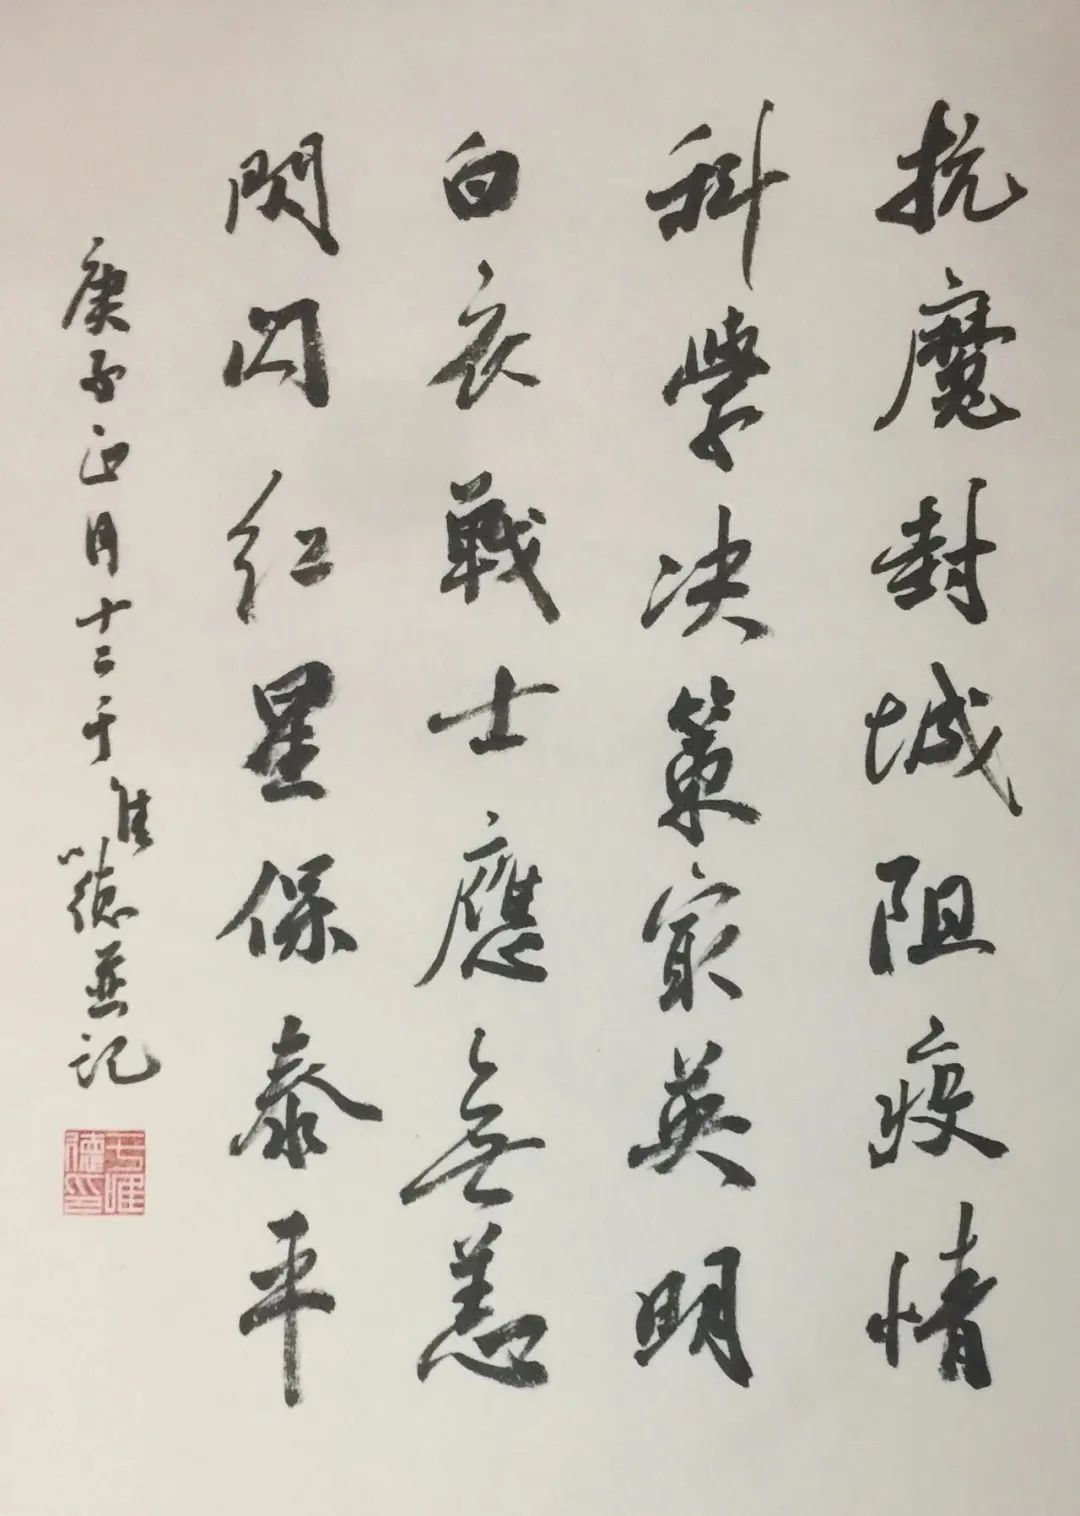 抗魔封城阻疫情
科學决策最英明
白衣戰士應無恙
閃闪红星保泰平
庚子正月十二于
德並记